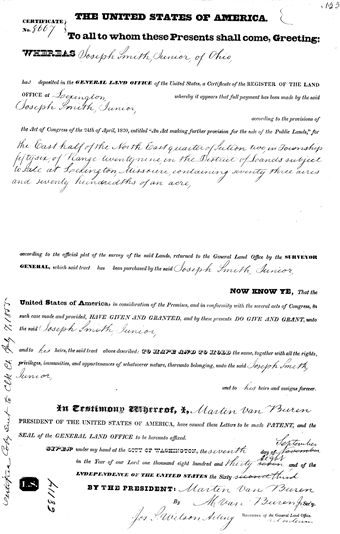 .123
THE UNITED STATES OF AMERICA.
CERTIFICATE
No. 8667
To all to whom these Presents shall come, Greeting:
WHEREAS Joseph Smith, Junior, of Ohio,
has deposited in the GENERAL LAND OFFICE of the United States, a Certificate of the REGISTER OF THE LAND
OFFICE at Lexington whereby it appears that full payment has been made by the said
Joseph Smith, Junior,
according to the provisions of
the Act of Congress of the 24th of April, 1820, entitled "An Act making further provision for the sale of the Public Lands," for
the East half of the North East quarter of Section two in Township
fifty six of Range twenty nine in the District of Lands subject
to sale at Lexington Missouri, containing seventy three acres
and seventy hundredths of an acre,
according to the official plat of the survey of the said Lands, returned to the General Land Office by the SURVEYOR
GENERAL, which said tract has been purchased by the said Joseph Smith, Junior,
NOW KNOW YE, That the
United States of America, in consideration of the Premises, and in conformity with the several acts of Congress, in
such case made and provided, HAVE GIVEN AND GRANTED, and by these presents DO GIVE AND GRANT, unto
the said Joseph Smith, Junior,
and to his heirs, the said tract above described: TO HAVE AND TO HOLD the same, together with all the rights,
privileges, immunities, and appurtenances of whatsoever nature, thereunto belonging, unto the said Joseph Smith,
Junior,
and to his heirs and assigns forever.
In Testimony Whereof, I, Martin Van Buren
PRESIDENT OF THE UNITED STATES OF AMERICA, have caused these Letters to be made PATENT, and the
SEAL of the GENERAL LAND OFFICE to be hereunto affixed.
September
GIVEN under my hand at the CITY OF WASHINGTON, the seventh day of November
eight
in the Year of our Lord one thousand eight hundred and thirty seven and of the
INDEPENDENCE OF THE UNITED STATES the Sixty second third
BY THE PRESIDENT: Martin Van Buren
L.S.
By M. Van Buren Jr Sec'y.
Jos. S. Wilson, Acting Recorder of the General Land Office,
ad interim
68114
Certified Copy sent to July 7. 1855